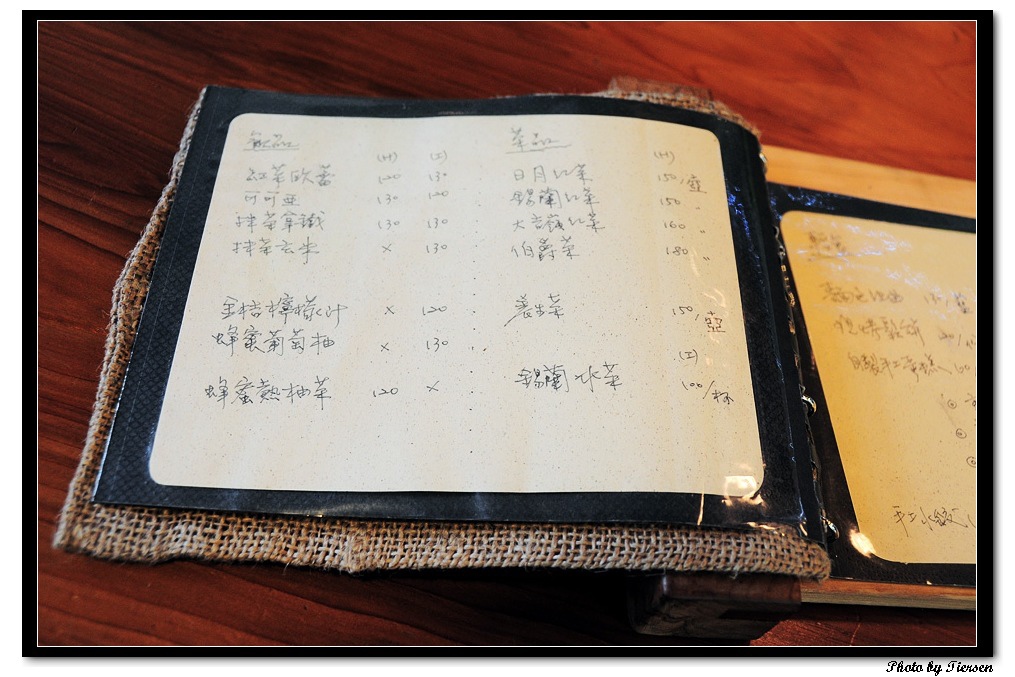 飲品
(H) (I)
紅茶歐蕾 120 130
可可亞 130 120
抹茶拿鐵 130 130
抹茶玄米 x 130
金桔檸檬汁 x 120
蜂蜜葡萄柚 x 130
蜂蜜熱柚茶 120 x
茶品
(H)
日月紅茶 150/壺
錫蘭紅茶 150 〃
大吉嶺紅茶 160 〃
伯爵茶 180 〃
養生茶 150/壺
(I)
錫蘭冰茶 100/杯
手工水餃
Photo by Tiersen